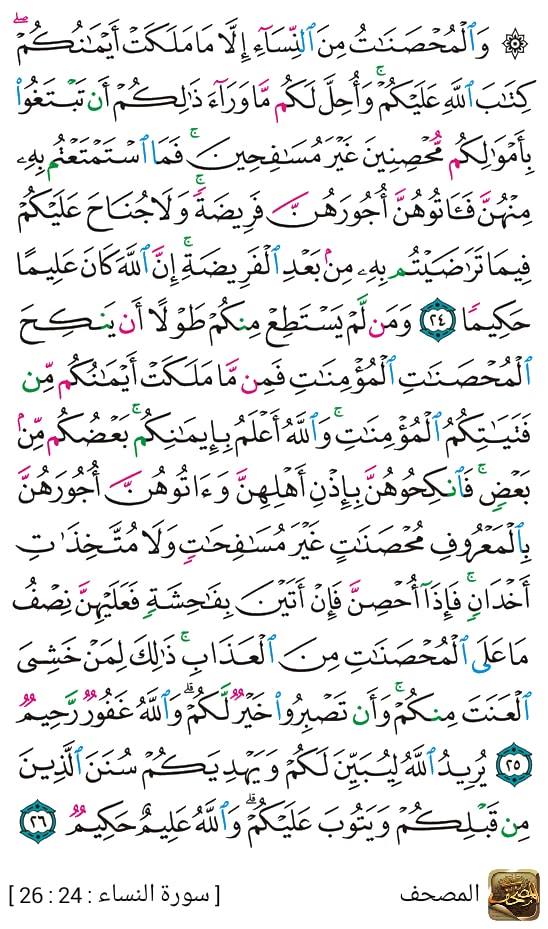 ۞ وَٱلْمُحْصَنَٰتُ مِنَ ٱلنِّسَآءِ إِلَّا مَا مَلَكَتْ أَيْمَٰنُكُمْ ۖ
كِتَٰبَ ٱللَّهِ عَلَيْكُمْ ۚ وَأُحِلَّ لَكُم مَّا وَرَآءَ ذَٰلِكُمْ أَن تَبْتَغُوا۟
بِأَمْوَٰلِكُم مُّحْصِنِينَ غَيْرَ مُسَٰفِحِينَ ۚ فَمَا ٱسْتَمْتَعْتُم بِهِۦ
مِنْهُنَّ فَـَٔاتُوهُنَّ أُجُورَهُنَّ فَرِيضَةً ۚ وَلَا جُنَاحَ عَلَيْكُمْ
فِيمَا تَرَٰضَيْتُم بِهِۦ مِنۢ بَعْدِ ٱلْفَرِيضَةِ ۚ إِنَّ ٱللَّهَ كَانَ عَلِيمًا
حَكِيمًا ٢٤ وَمَن لَّمْ يَسْتَطِعْ مِنكُمْ طَوْلًا أَن يَنكِحَ
ٱلْمُحْصَنَٰتِ ٱلْمُؤْمِنَٰتِ فَمِن مَّا مَلَكَتْ أَيْمَٰنُكُم مِّن
فَتَيَٰتِكُمُ ٱلْمُؤْمِنَٰتِ ۚ وَٱللَّهُ أَعْلَمُ بِإِيمَٰنِكُم ۚ بَعْضُكُم مِّنۢ
بَعْضٍ ۚ فَٱنكِحُوهُنَّ بِإِذْنِ أَهْلِهِنَّ وَءَاتُوهُنَّ أُجُورَهُنَّ
بِٱلْمَعْرُوفِ مُحْصَنَٰتٍ غَيْرَ مُسَٰفِحَٰتٍ وَلَا مُتَّخِذَٰتِ
أَخْدَانٍ ۚ فَإِذَآ أُحْصِنَّ فَإِنْ أَتَيْنَ بِفَٰحِشَةٍ فَعَلَيْهِنَّ نِصْفُ
مَا عَلَى ٱلْمُحْصَنَٰتِ مِنَ ٱلْعَذَابِ ۚ ذَٰلِكَ لِمَنْ خَشِىَ
ٱلْعَنَتَ مِنكُمْ ۚ وَأَن تَصْبِرُوا۟ خَيْرٌ لَّكُمْ ۗ وَٱللَّهُ غَفُورٌ رَّحِيمٌ
٢٥ يُرِيدُ ٱللَّهُ لِيُبَيِّنَ لَكُمْ وَيَهْدِيَكُمْ سُنَنَ ٱلَّذِينَ
مِن قَبْلِكُمْ وَيَتُوبَ عَلَيْكُمْ ۗ وَٱللَّهُ عَلِيمٌ حَكِيمٌ ٢٦
المصحف
[ سورة النساء : 24 : 26 ]